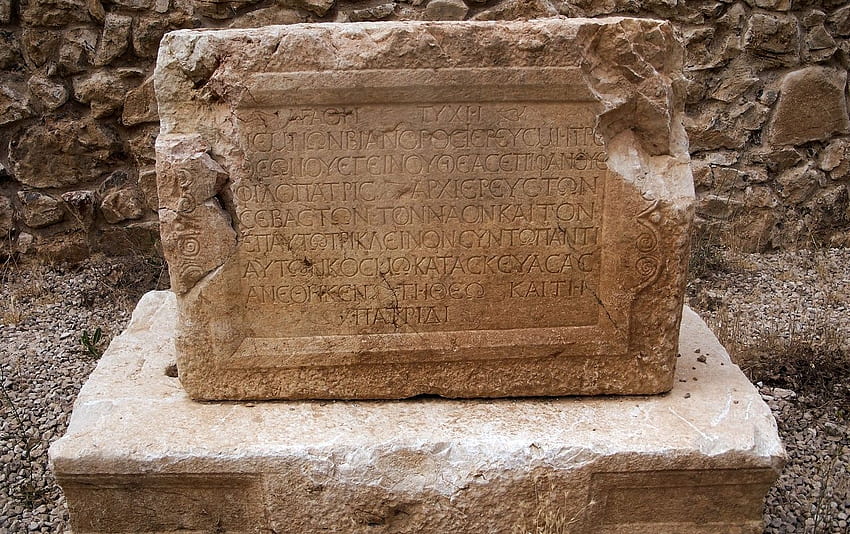 ΤΥΧΗ
ΒΙΑΝΟΡΟΣΙΕΡΕΥΣΜΗΤΡΟ
ΘΕΩΝΟΥΕΓΕΙΝΟΥΘΕΑΣΕΠΙΦΑΝΟΥΣ
ΦΙΛΟΠΑΤΡΙΣ ΑΡΧΙΕΡΕΥΣΤΩΝ
ΣΕΒΑΣΤΩΝΤΟΝΝΑΟΝΚΑΙΤΟΝ
ΕΠΑΥΤΩΤΡΙΚΛΕΙΝΟΝΣΥΝΤΩΠΑΝΤΙ
ΑΥΤΩΝΚΟΣΜΩΚΑΤΑΣΚΕΥΑΣΑΣ
ΑΝΕΘΗΚΕΝ ΤΗΘΕΩ ΚΑΙΤΗ
ΠΑΤΡΙΔΙ